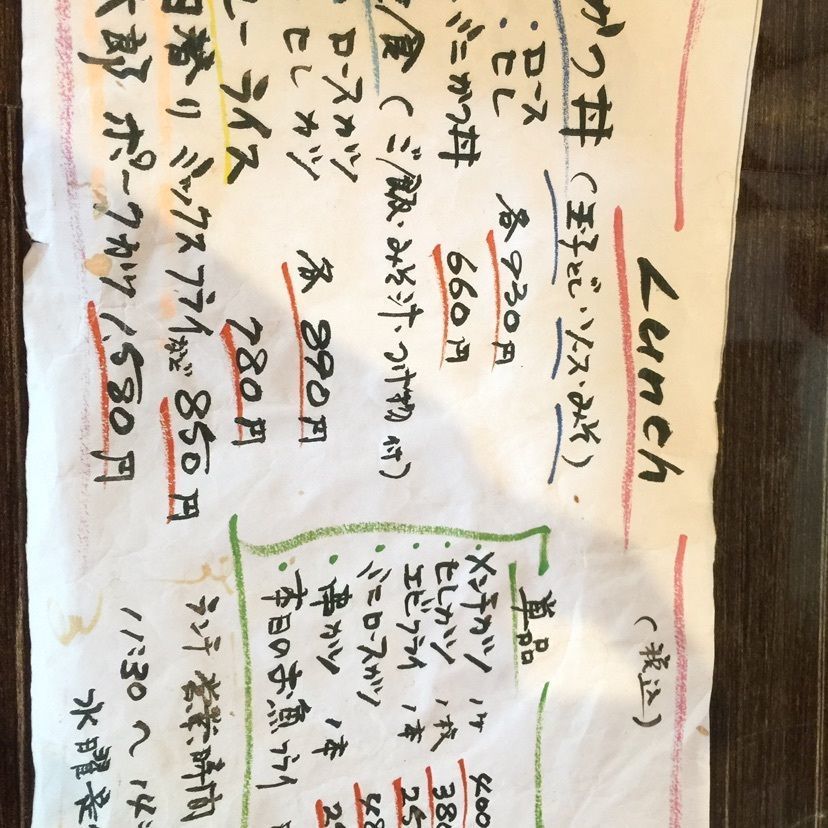 Lunch
(税込)
かつ丼 (玉子とじ・ソース・みそ)
・ロース
・ヒレ
各930円
ミニかつ丼 660円
定食 (ご飯・みそ汁・つけ物付)
ロースカツ
ヒレカツ
各890円
ー ライス 780円
日替り ミックスフライなど 850円
郎 ポークかつ 1,580円
単品
・メンチカツ 1ケ 400
・ヒレカツ 1枚 380
・エビフライ 1本 25
・ミニロースカツ 48
・串カツ 1本
・本日のお魚フライ
ランチ営業時間
11:30〜14:
水曜定